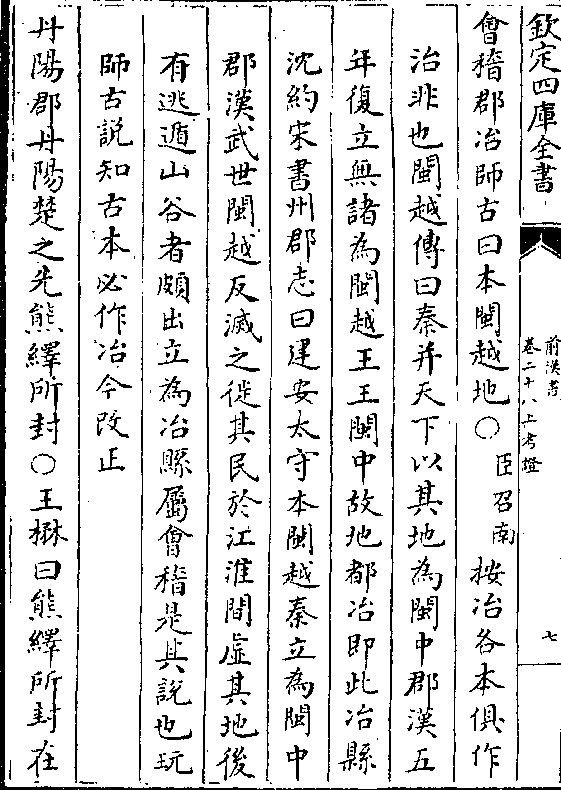 欽定四庫全書
前漢書
卷二十八上考證
七
會稽郡冶師古曰本閩越地○臣召南按冶各本俱作
治非也閩越傳曰秦并天下以其地為閩中郡漢五
年復立無諸為閩越王王閩中故地都冶即此冶縣
沈約宋書州郡志曰建安太守本閩越秦立為閩中
郡漢武世閩越反滅之徙其民於江淮間虛其地後
有逃遁山谷者頗出立為冶縣屬會稽是其說也玩
師古說知古本必作冶今改正
丹陽郡丹陽楚之先熊繹所封○王楙曰熊繹所封在